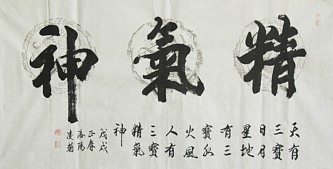 精氣神
天有
三寶
日月
星地
有三
寶水
火風
人有
三寶
精氣
神
戊戌
正春
洛陽